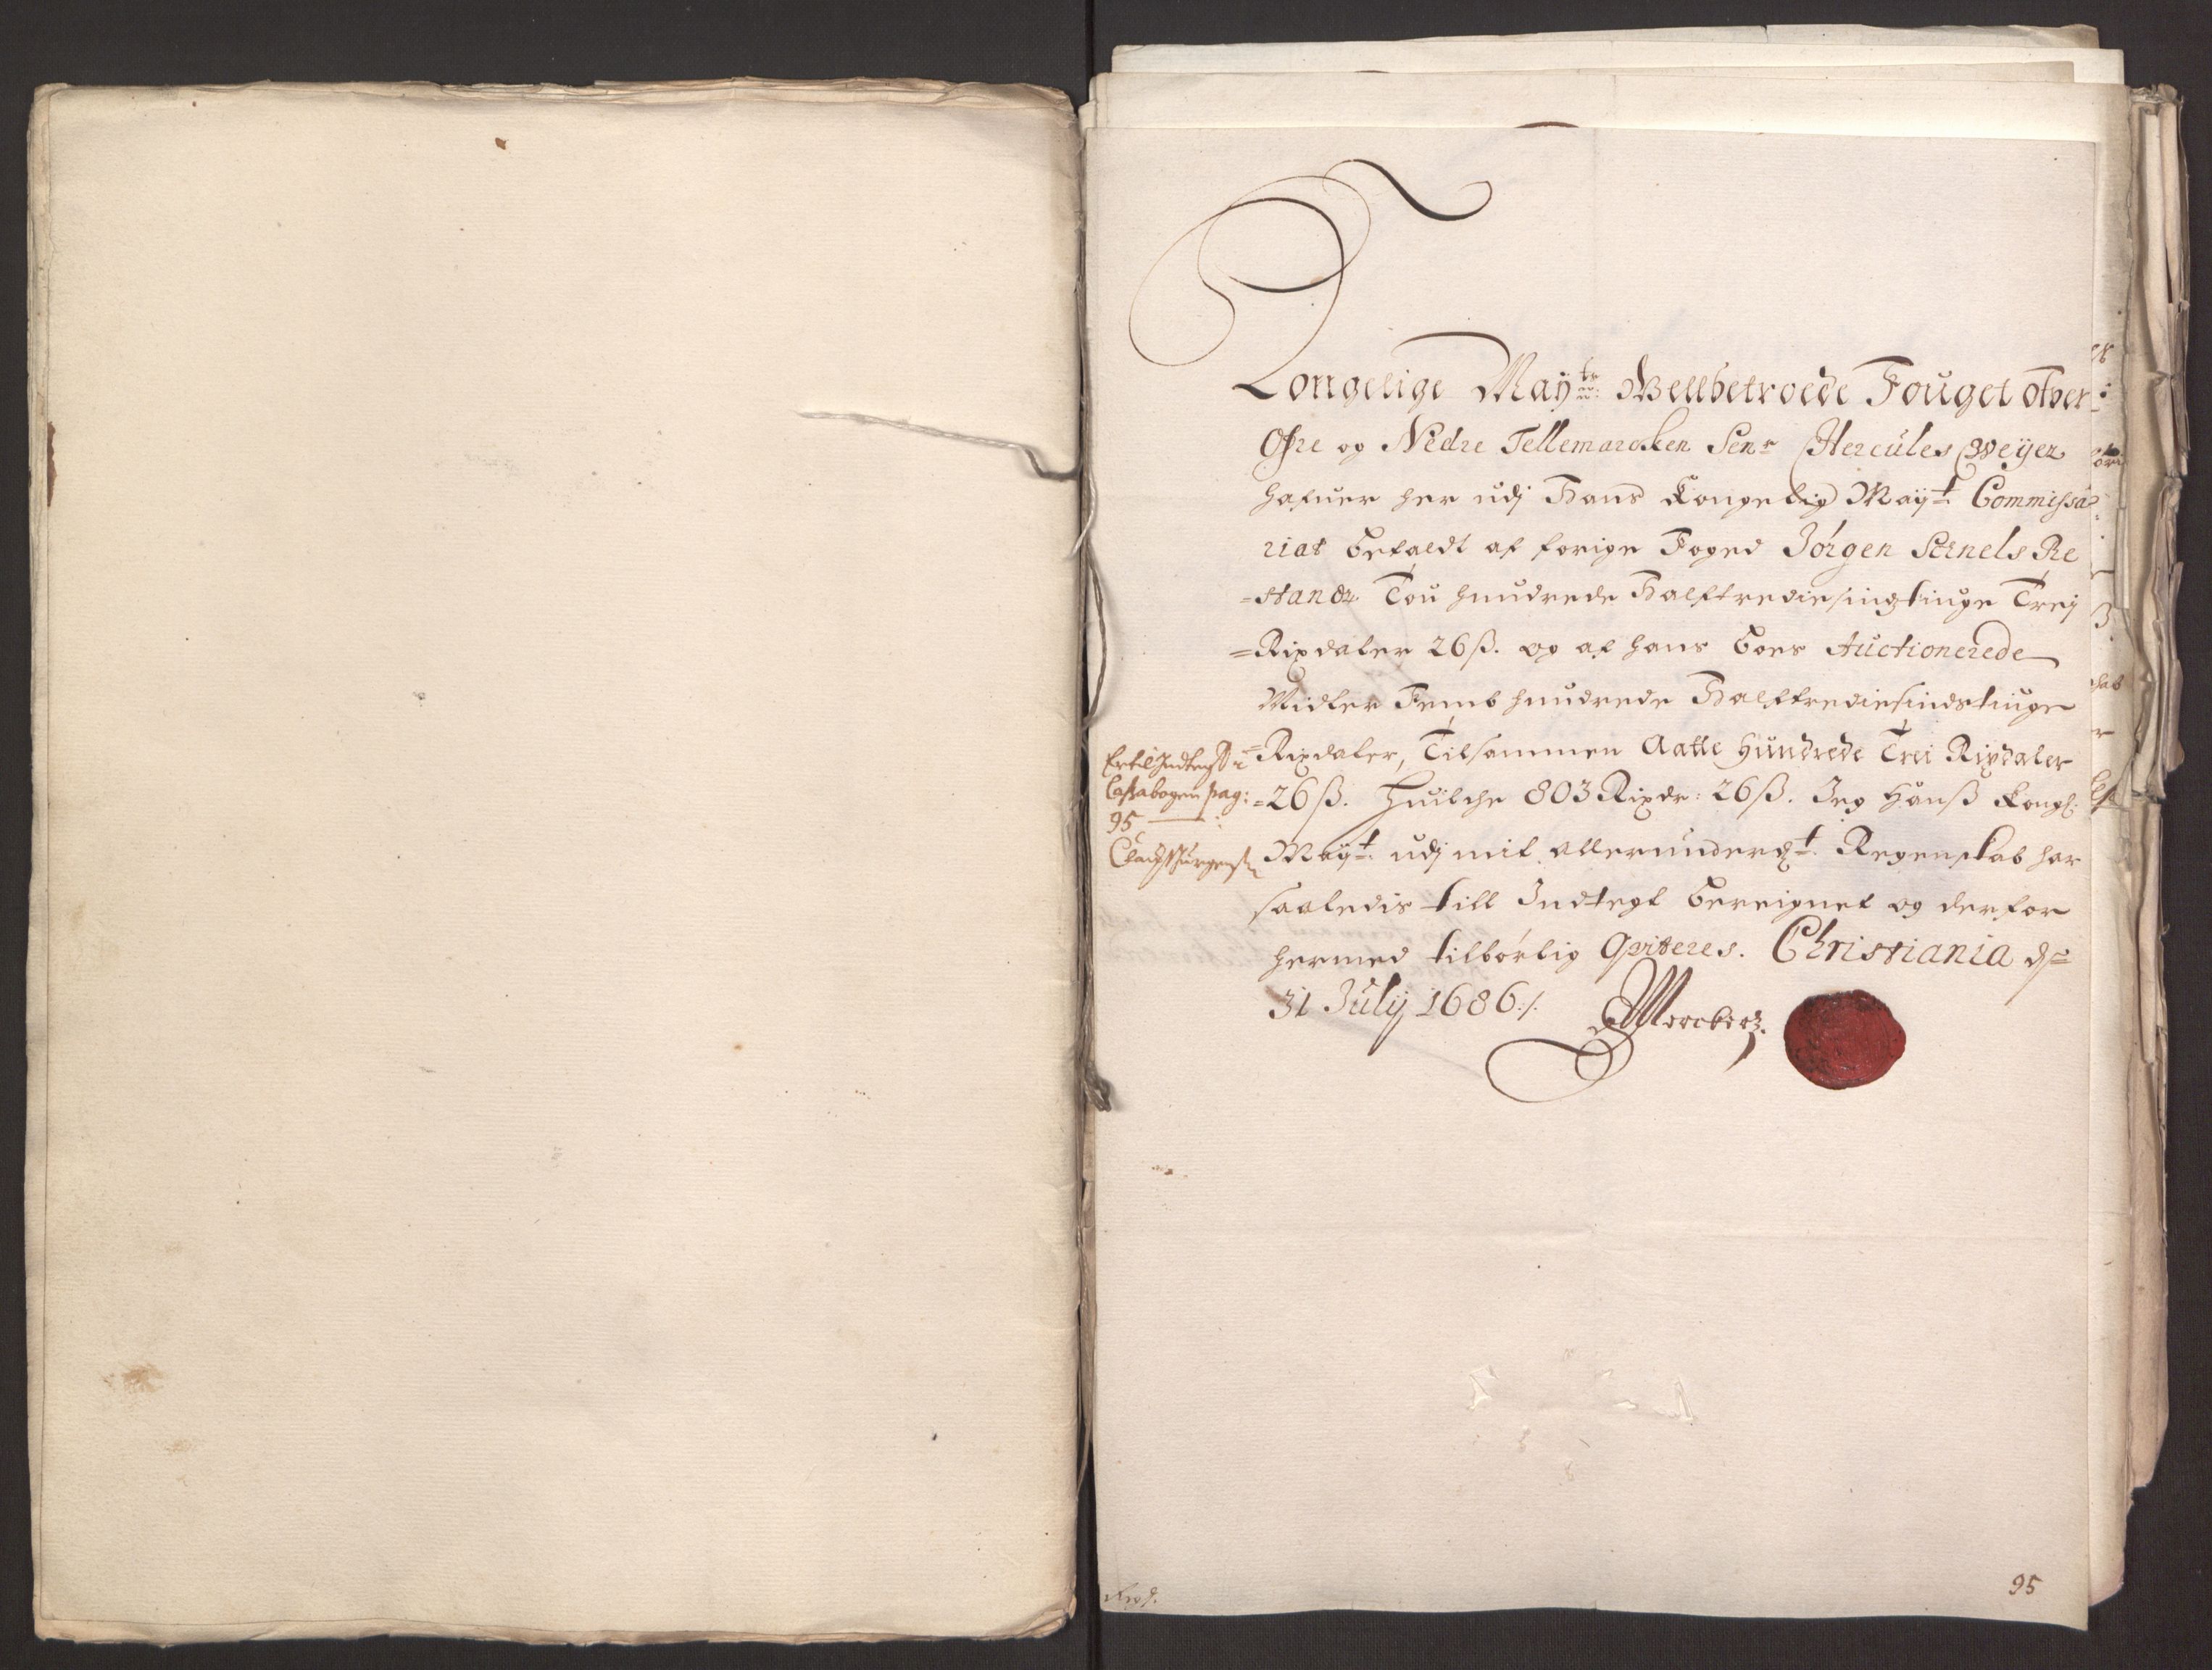 Kongelige Mayts Wellbetroede Fouget ofver
Øfre og Nedre Tellemarcken Senr Hercules Weyer
hafuer her udj Hans Kongelig Mayt. Commissa
riat betaldt af forige Foged Jørgen Pernels Re
=standz Tou hundrede Halftrediesingtiuge Trej
=Rixdaler 26 ß. og af hans boes Auctionerede
Midler Femb hundrede Halftrediesindstiuge
=Rixdaler, Tilsammen Aatte Hundrede Trei Rixdaler
=26 ß. Huilche 803 Rixdr: 26 ß. Jeg Hanß Kongl:
Mayt. udj mit allerunderdt. Regenskab har
saaledis till Indtegt bereignet og derfor
hermed tilbørlig Qviteres. Christiania d
31 July 1686 ./.
Er til Indtegt i
Cassabogen pag:
95
95